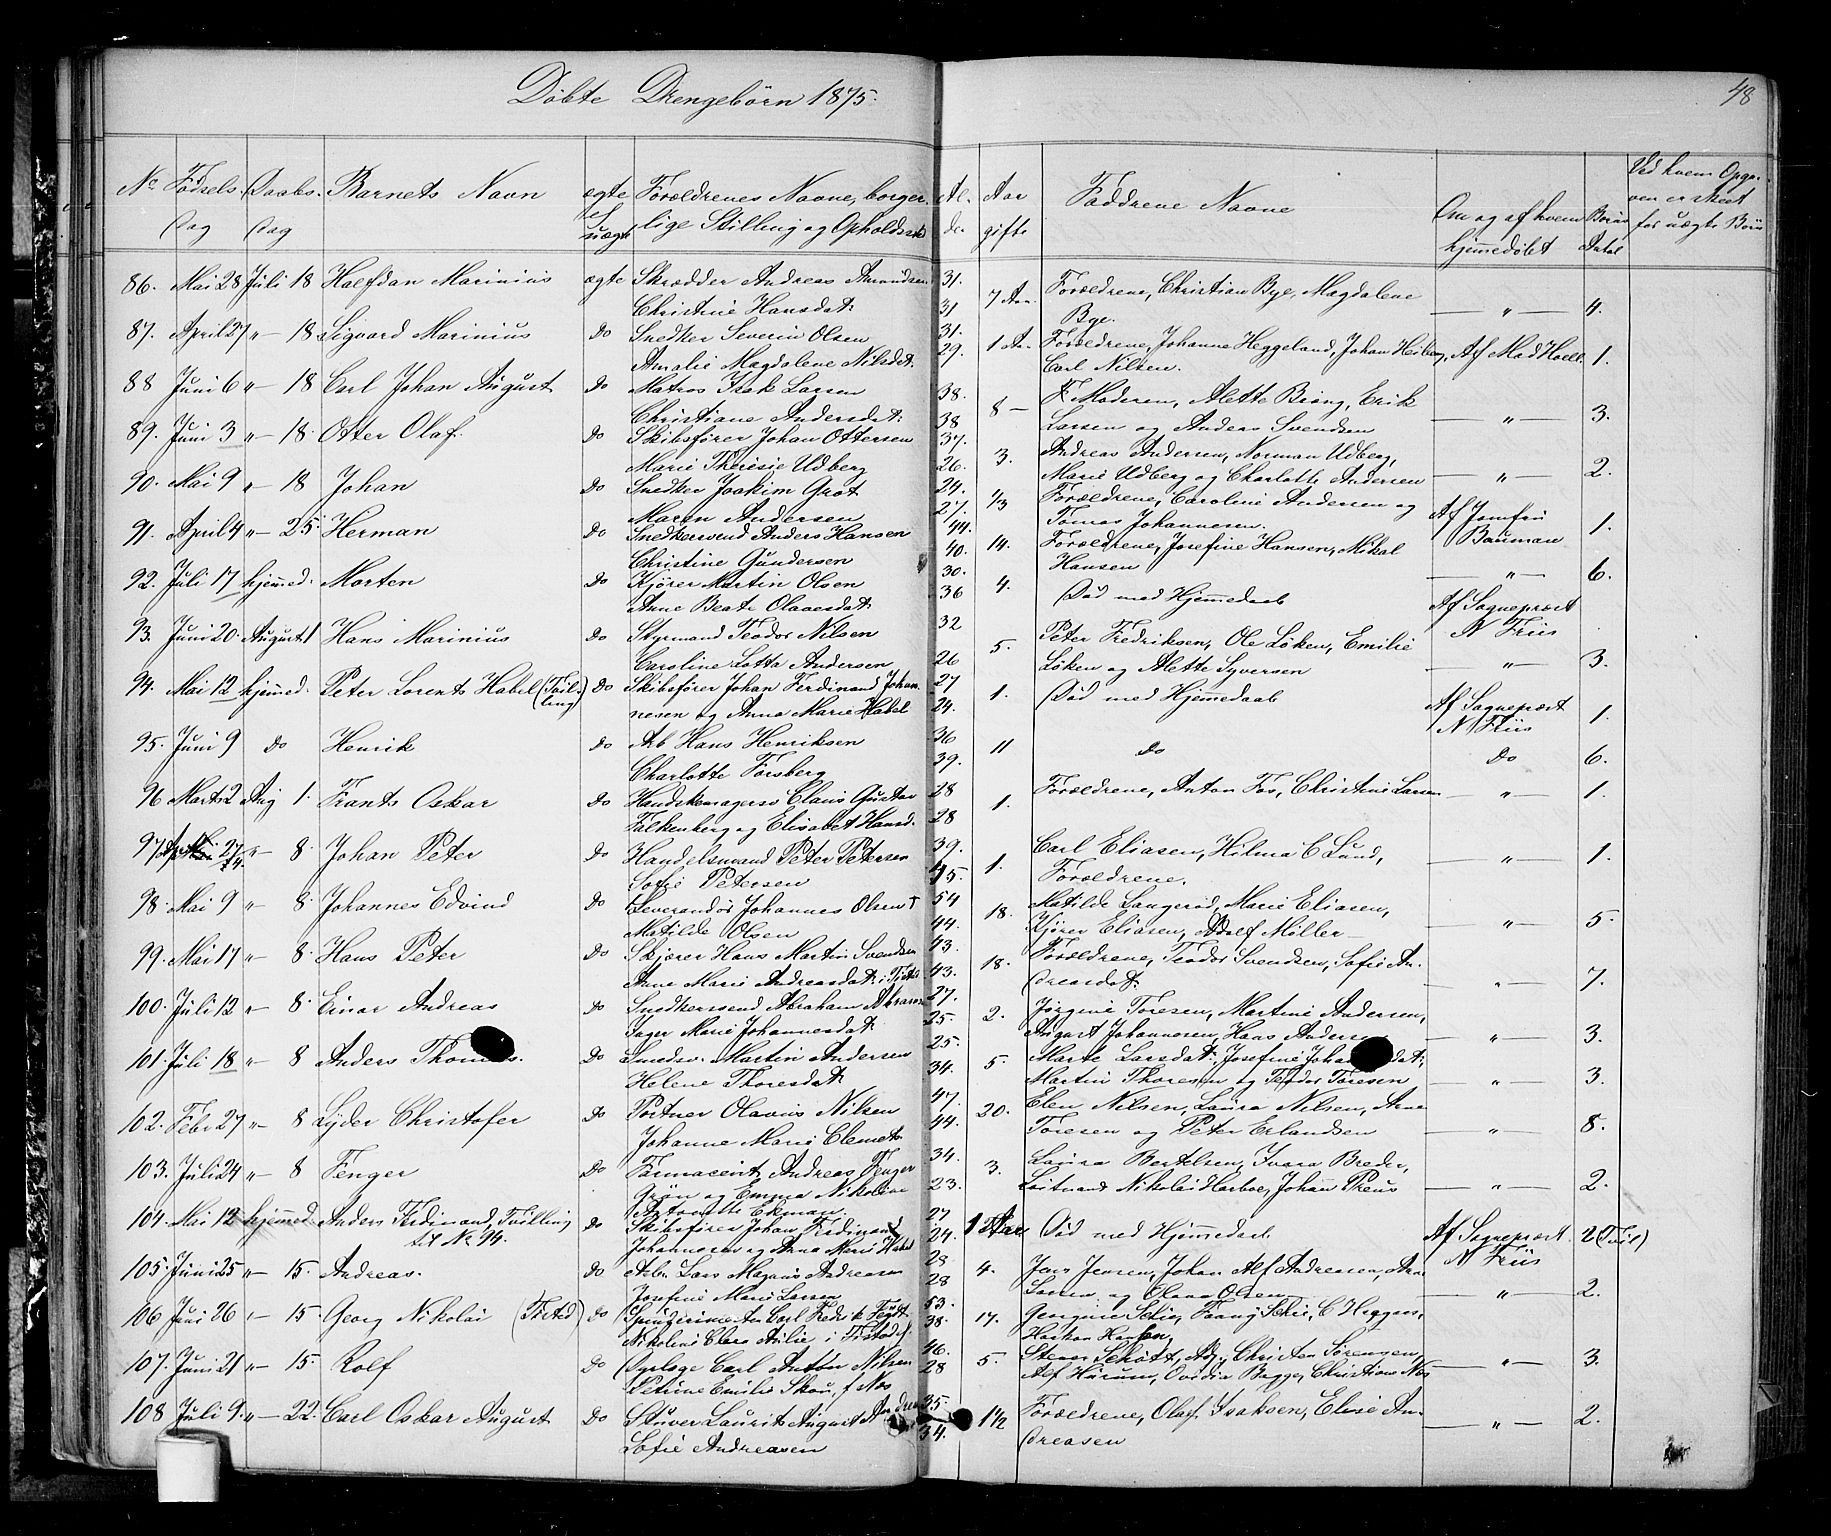 Döbte Drengebörn 1875.
48
No Födsels Dag
Daabs Dag
Barnets Navn
ægte el uægte
Forældrenes Navne, borgerlige Stilling og Opholdssted
Alder
Aar gifte
Faddrene Navne
Om og af hvem hjemmedöbt
Börns Antal
Ved hvem Opgaven er skeet for uægte Börn
86. Mai 28 Juli 18 Halfdan Marinius ægte Skrædder Andreas Amundsen 31. 7 Aar Forældrene, Christian Bye, Magdalene — " — 4.
Christine Hansdat: 31 Bye.
87. April 27 " — 18 Sigvard Marinius Do Snedker Severin Olsen 31. 1 Aar Forældrene, Johanne Heggeland, Johan Heiberg, Af Mad Holt 1.
Amalie Magdalene Nilsdat. 29. Carl Nilsen.
88 Juni 6 " — 18 Carl Johan August Do Matros Isak Larsen 38. 8 — F. Madsen, Alette Bröng, Erik — " — 3.
Christiane Andersdat: 38 Larsen og Anders Svendsen
89. Juni 3 " — 18. Otter Olaf. Do Skibsförer Johan Ottersen 37. 3. Andreas Andersen, Norman Udberg, — " — 2.
Marie Theresie Udberg 26. Marie Udberg og Charlotte Andersen
90. Mai 9 " — 18 Johan Do Snedker Joakim Grot 24. 1/3 Forældrene, Caroline Andersen og Af Jomfru 1.
Maren Andersen 27. Tomas Johannesen. Bauman
91. April 4 " — 25 Herman Do Snedkersvend Anders Hansen 44. 14. Forældrene, Josefine Hansen, Mikal — " — 6.
Christine Gundersen 40. Hansen
92. Juli 17 hjemmed. Morten Do Kjörer Martin Olsen 30. 4. Död med Hjemmedaab Af Sognepræst
Anne Beate Olavesdat: 36 N Friis
93. Juni 20. August 1 Hans Marinius Do Styrmand Teodor Nilsen 32 5. Peter Fredriksen, Ole Löken, Emilie — " — 3.
Caroline Lotta Andersen 26 Löken og Alette Syversen
94. Mai 12 hjemmed. Peter Lorents Habel (Tvilling) Do Skibsförer Johan Ferdinand Johan- 27 1. Död med Hjemmedaab Af Sognepræst 1.
nesen og Anna Marie Habel 24. N Friis
95. Juni 9 Do Henrik Do Arb Hans Henriksen 36 11 Do Do 6.
Charlotte Forsberg 39.
96 Marts 2 Aug 1. Frants Oskar Do Handskemagersv Claus Gustav 28 1. Forældrene, Anton Fos, Christine Larsen — " — 1.
Falkenberg og Elisabet Hansd. 28
97 April 27 " — 8. Johan Peter Do Handelsmand Peter Petersen 39. 1. Carl Eliasen, Hilma C Lund, — " — 1.
Sofie Petersen 45. Forældrene.
98. Mai 9 " — 8. Johannes Edvind Do Leverandör Johannes Olsen 54 18. Matilde Langeröd, Marie Eliasen, — " — 5.
Matilde Olsen 44. Kjörer Eliasen, Adolf Möller
99. Mai 17 " — 8. Hans Peter Do Skjörer Hans Martin Svendsen 43. 18. Forældrene, Teodor Svendsen, Sofie An- — " — 7.
Anne Marie Andreasdat: i 43. dreasdat.
100. Juli 12 " — 8. Einar Andreas Do Snedkersvend Abraham Abramsen 27. 2. Jörgine Toresen, Martine Andersen, — " — 3.
Inger Marie Johannesdat: 25. August Johannesen, Hans Andersen
101. Juli 18 " — 8 Anders Thomas. Do Smedsv. Martin Andersen 25. 5. Marte Larsdat:, Josefine Johansdat: — " — 3.
Helene Thoresdat: 34. Martin Thoresen og Teodor Toresen
102. Febr 27 " — 8 Lyder Christofer Do Portner Olavus Nilsen 47. 20. Elen Nilsen, Laura Nilsen, Arne — " — 8.
Johanne Marie Clemets 44. Toresen og Peter Erlandsen
103. Juli 24 " — 8 Fenger Do Farmacevt Andreas Fenger 34. 3. Laura Bertelsen, Ivara Breder, — " — 2.
Grön og Emma Nikoline 23. Löitnant Nikolai Harboe, Johan Preus
Antonette Ekman.
104. Mai 12 hjemmed. Anders Ferdinand, Tvilling Do Skibsförer Johan Ferdinand 27 1 Aar Död med Hjemmedaab. Af Sognepræst 2 (Tvil)
til No 94. Johannesen og Anna Marie Habel 24. N Friis
105. Juni 25 " — 15. Andreas. Do Arb. Lars Magnus Andreasen 28 4. Jens Jensen, Johan Alf Andreasen, — " — 2.
Josefine Marie Larsen 28 Larsen og Olava Olsen
106 Juni 26 " — 15. Georg Nikolai (Tisted) Do Carl Fredrik 53. 17. Georgine Setie, Fanny Setie, C Heggens,
Nikoline Clara Aulie i 38. Haakon Hansen,
107. Juni 21 " — 15. Rolf Do Dyrlæge Carl Anton Nilsen 46. 5. Stener Schött, Adj. Christen Sörensen, — " — 3.
Petrine Emilie Skou, f Næs 28 Alf Hurum, Ovidia Bagge, Christiane Næs
108 Juli 9. " — 22. Carl Oskar August Do Stuver Laurits August Andreas 35. 1 1/2 Forældrene, Olaf Isaksen, Elise An- — " — 2.
Sofie Andreasen 34. dreasen